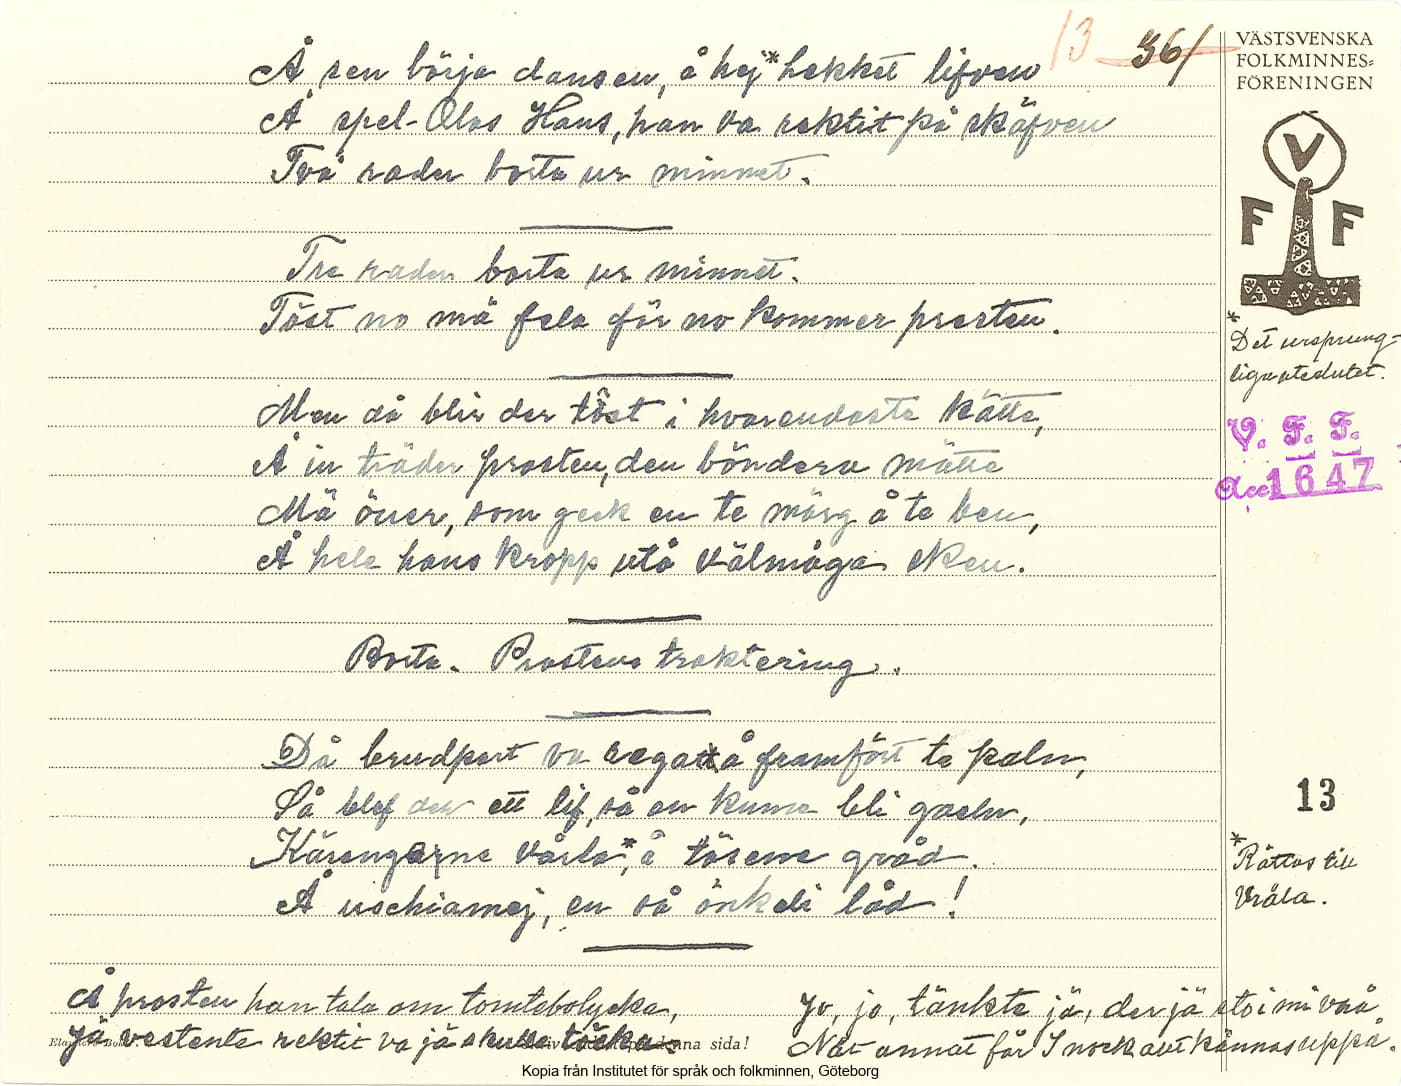 13 36/
VÄSTSVENSKA
FOLKMINNES=
FÖRENINGEN
V
F F
Å sen börja dansen, å hej* hekket lifven
Å spel-Olas Hans, han va rektit på skäfven
Två rader borta ur minnet.
Tre rader borta ur minnet.
Töst no må fela för no kommer prosten.
* Det ursprung-
liga uteslutet.
V. F. F.
Acc. 1647
Men då blir der töst i hvarendaste kätte,
Å in träder prosten, den böndera mätte
Mä öuer, som geck en te märg å te ben,
Å hele hans kropp utå välmåga sken.
Borta. Prostens traktering.
Då brudpart va å framfört te paln,
Så blef der ett lif, så en kunne bli galn,
13
Kärengerne vårla*, å tösene gråd.
Å uschiamej, en så önkeli låd!
* Rättas till
Vråla.
Å prosten han tala om tomtebolycka,
Jä vestente rektit va jä skulle töcka.
Jo, jo, tänkte jä, der jä sto i mi vrå
Nåt annat får I nock att kännas uppå.
denna sida!
Kopia från Institutet för språk och folkminnen, Göteborg